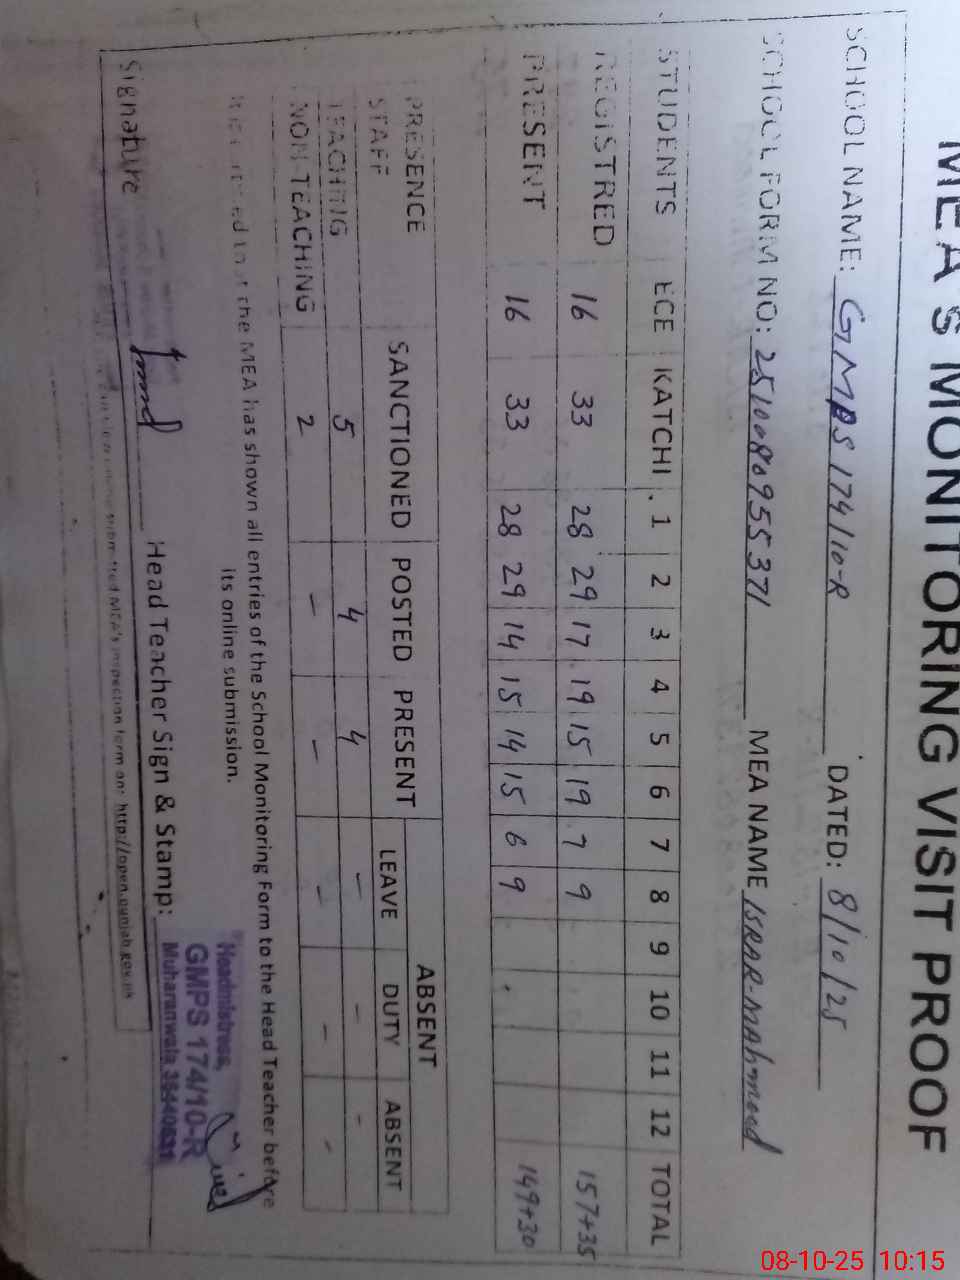 MEA'S MONITORING VISIT PROOF
SCHOOL NAME: GMPS 174/10-R DATED: 8/10/25
SCHOOL FORM NO: 2510080955371 MEA NAME ISRAR-MAhmood
STUDENTS ECE KATCHI 1 2 3 4 5 6 7 8 9 10 11 12 TOTAL
REGISTRED 16 33 28 29 17 19 15 19 7 9 157+35
PRESENT 16 33 28 29 14 15 14 15 6 9 149+30
PRESENCE STAFF SANCTIONED POSTED PRESENT ABSENT
LEAVE DUTY ABSENT
TEACHING 5 4 4 - - -
NON TEACHING 2 - - - - -
the MEA has shown all entries of the School Monitoring Form to the Head Teacher before
its online submission.
Signature Head Teacher Sign & Stamp:
Headmistress,
GMPS 174/10-R
Muharanwala
submitted MEA's inspection form on: http://open.punjab.gov.pk
08-10-25 10:15